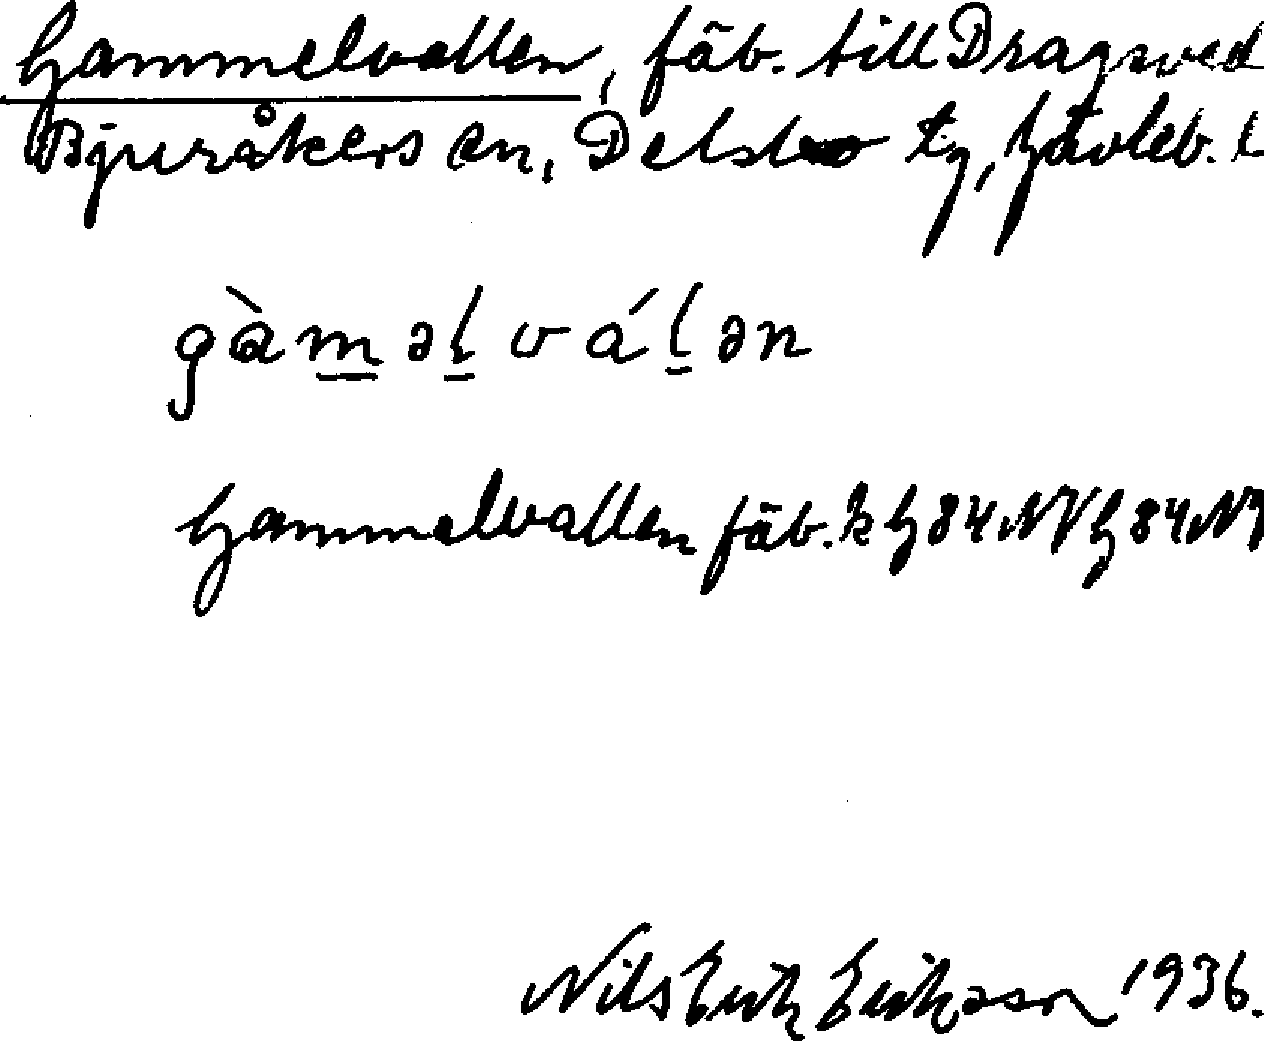 Gammelvallen, fäb. till Dragsved
Bjuråkers sn, Delsbo tg, Gävleb. l
gàm̲əl̲vál̲ən
Gammelvallen fäb. k G 84 NV G 84 NV
Nils Erik Eriksson 1936.